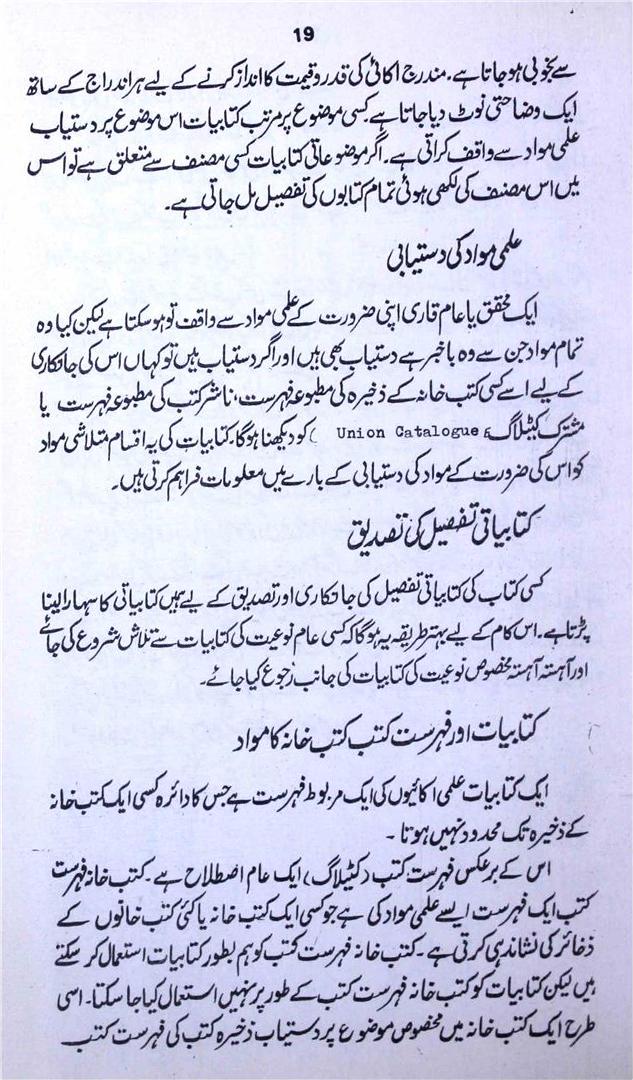 19
سے بخوبی ہو جاتا ہے۔ مندرج اکائی کی قدر و قیمت کا انداز کرنے کے لیے ہر اندراج کے ساتھ
ایک وضاحتی نوٹ دیا جاتا ہے۔ کسی موضوع پر مرتب کتابیات اس موضوع پر دستیاب
علمی مواد سے واقف کراتی ہے۔ اگر موضوعاتی کتابیات کسی مصنف سے متعلق ہے تو اس
میں اس مصنف کی لکھی ہوئی تمام کتابوں کی تفصیل مل جاتی ہے۔
علمی مواد کی دستیابی
ایک محقق یا عام قاری اپنی ضرورت کے علمی مواد سے واقف تو ہو سکتا ہے لیکن کیا وہ
تمام مواد جن سے وہ باخبر ہے دستیاب بھی ہیں اور اگر دستیاب ہیں تو کہاں اس کی جانکاری
کے لیے اسے کسی کتب خانہ کے ذخیرہ کی مطبوعہ فہرست، ناشر کتب کی مطبوعہ فہرست یا
مشترک کیٹلاگ (Union Catalogue) کو دیکھنا ہوگا۔ کتابیات کی یہ اقسام متلاشی مواد
کو اس کی ضرورت کے مواد کی دستیابی کے بارے میں معلومات فراہم کرتی ہیں۔
کتابیاتی تفصیل کی تصدیق
کسی کتاب کی کتابیاتی تفصیل کی جانکاری اور تصدیق کے لیے ہمیں کتابیاتی کا سہارا لینا
پڑتا ہے۔ اس کام کے لیے بہتر طریقہ یہ ہوگا کہ کسی عام نوعیت کی کتابیات سے تلاش شروع کی جائے
اور آہستہ آہستہ مخصوص نوعیت کی کتابیات کی جانب رجوع کیا جائے۔
کتابیات اور فہرست کتب کتب خانہ کا مواد
ایک کتابیات علمی اکائیوں کی ایک مربوط فہرست ہے جس کا دائرہ کسی ایک کتب خانہ
کے ذخیرہ تک محدود نہیں ہوتا۔
اس کے برعکس فہرست کتب (کٹیلاگ) ایک عام اصطلاح ہے۔ کتب خانہ فہرست
کتب ایک فہرست ایسے علمی مواد کی ہے جو کسی ایک کتب خانہ یا کئی کتب خانوں کے
ذخائر کی نشاندہی کرتی ہے۔ کتب خانہ فہرست کتب کو ہم بطور کتابیات استعمال کر سکتے
ہیں لیکن کتابیات کو کتب خانہ فہرست کتب کے طور پر نہیں استعمال کیا جا سکتا۔ اسی
طرح ایک کتب خانہ میں مخصوص موضوع پر دستیاب ذخیرہ کتب کی فہرست کتب